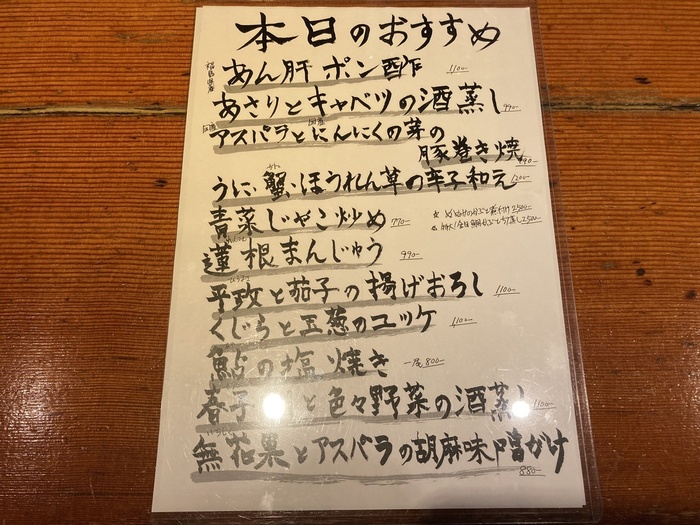 本日のおすすめ
福島県産
あん肝ポン酢 1100-
あさりとキャベツの酒蒸し 990-
アスパラとにんにくの芽の
豚巻き焼 990-
うに、蟹、ほうれん草の辛子和え 1200-
青菜じゃこ炒め 770-
蓮根まんじゅう 990-
ひらまさ
平政と茄子の揚げおろし 1100-
くじらと玉葱のユッケ 1100-
鮎の塩焼き 一尾800-
春子 と色々野菜の酒蒸し 1100-
無花果とアスパラの胡麻味噌がけ
880-